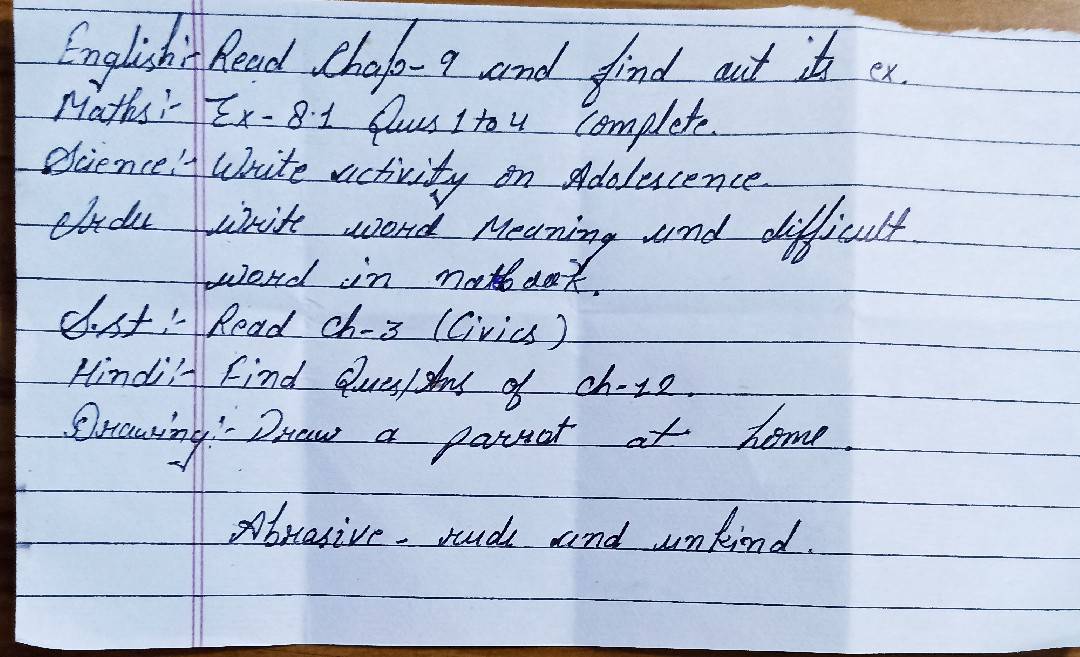 English:- Read Chap-9 and find out its ex.
Maths:- Ex-8.1 Ques 1 to 4 complete.
Science:- Write activity on Adolescence.
Urdu write word Meaning and difficult
word in notebook.
S.st:- Read ch-3 (Civics)
Hindi:- Find Ques/Ans of ch-12.
Drawing:- Draw a parrot at home.
Abrasive - rude and unkind.